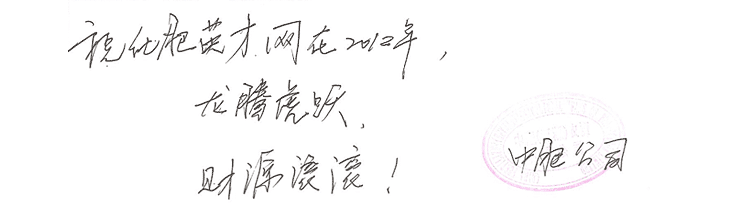 祝化肥英才网在2012年，
龙腾虎跃，
财源滚滚！
中肥公司